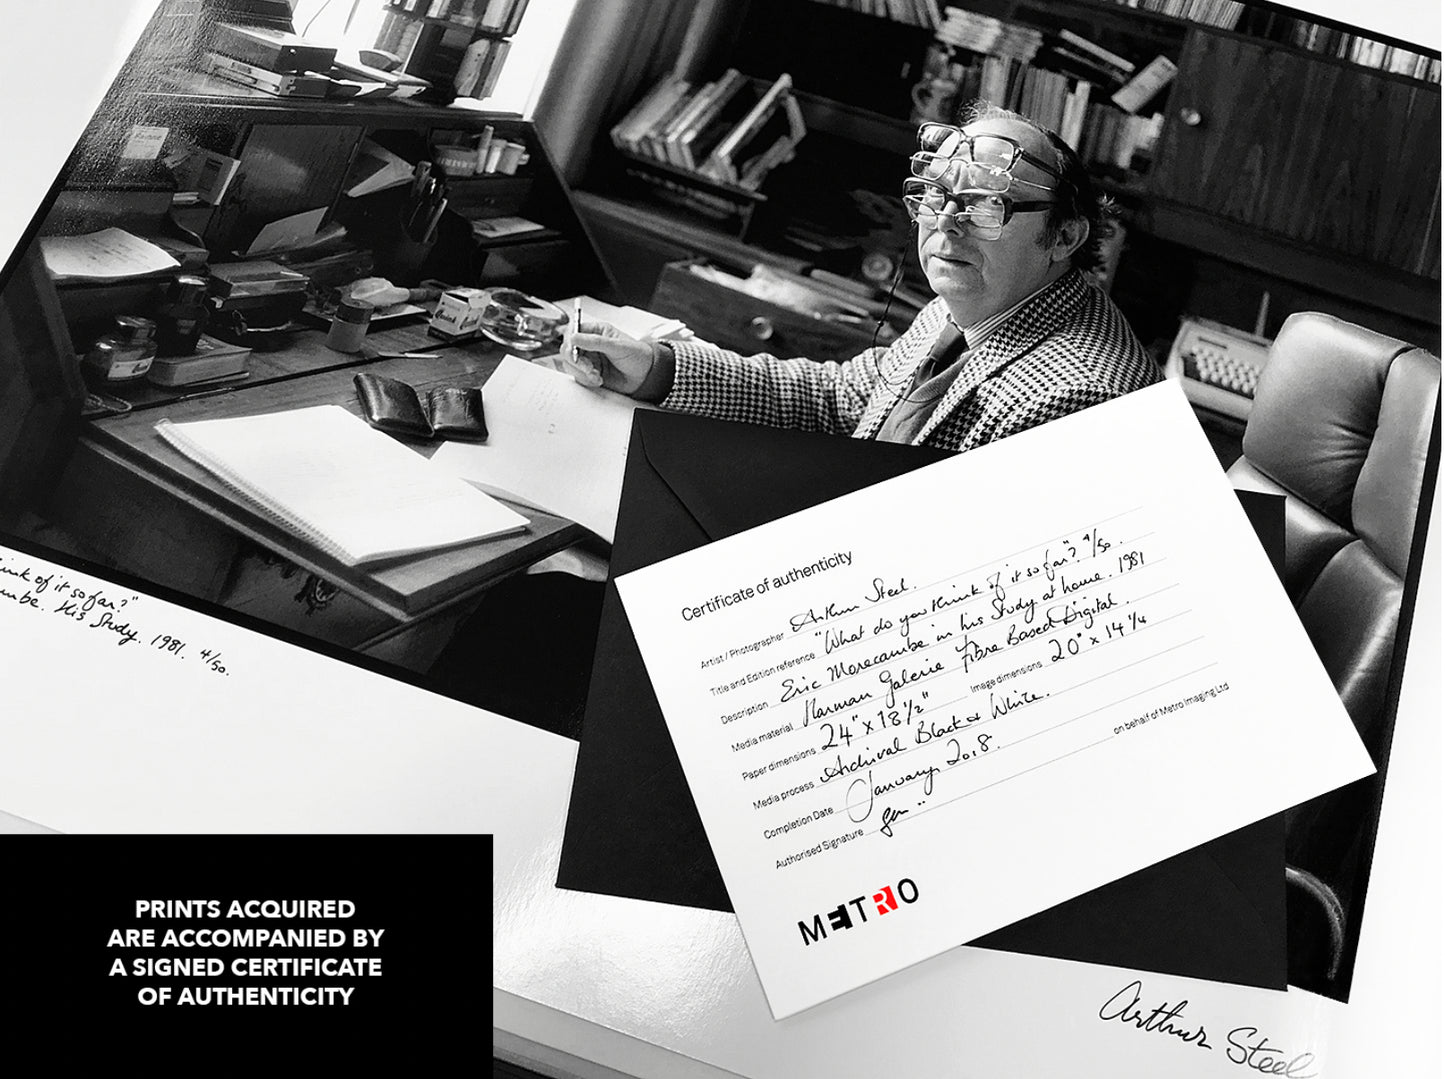 ink of it so far?"
mbe. His Study. 1981. 4/50.
Certificate of authenticity
Artist / Photographer Arthur Steel.
Title and Edition reference "What do you think of it so far"? 4/50.
Description Eric Morecambe in his Study at home. 1981
Media material Harman Galerie Fibre Based Digital.
Paper dimensions 24" x 18 1/2" Image dimensions 20" x 14 1/4
Media process Archival Black & White.
Completion Date January 2018.
Authorised Signature
on behalf of Metro Imaging Ltd
METRO
Arthur Steel
PRINTS ACQUIRED
ARE ACCOMPANIED BY
A SIGNED CERTIFICATE
OF AUTHENTICITY